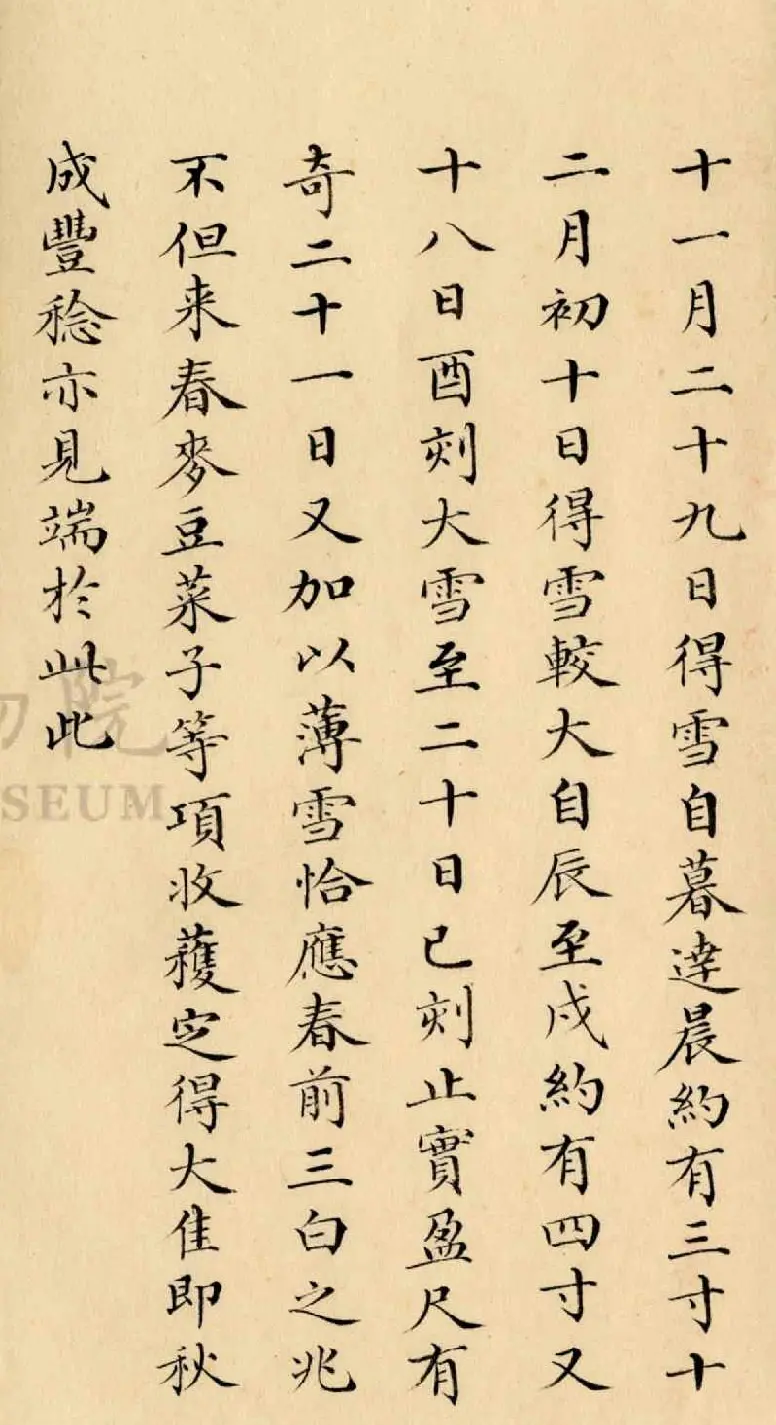 十一月二十九日得雪自暮達晨約有三寸十
二月初十日得雪較大自辰至戌約有四寸又
十八日酉刻大雪至二十日巳刻止實盈尺有
奇二十一日又加以薄雪恰應春前三白之兆
不但来春麥豆菜子等項收蘐定得大佳即秋
成豐稔亦見端於此此
物院
SEUM